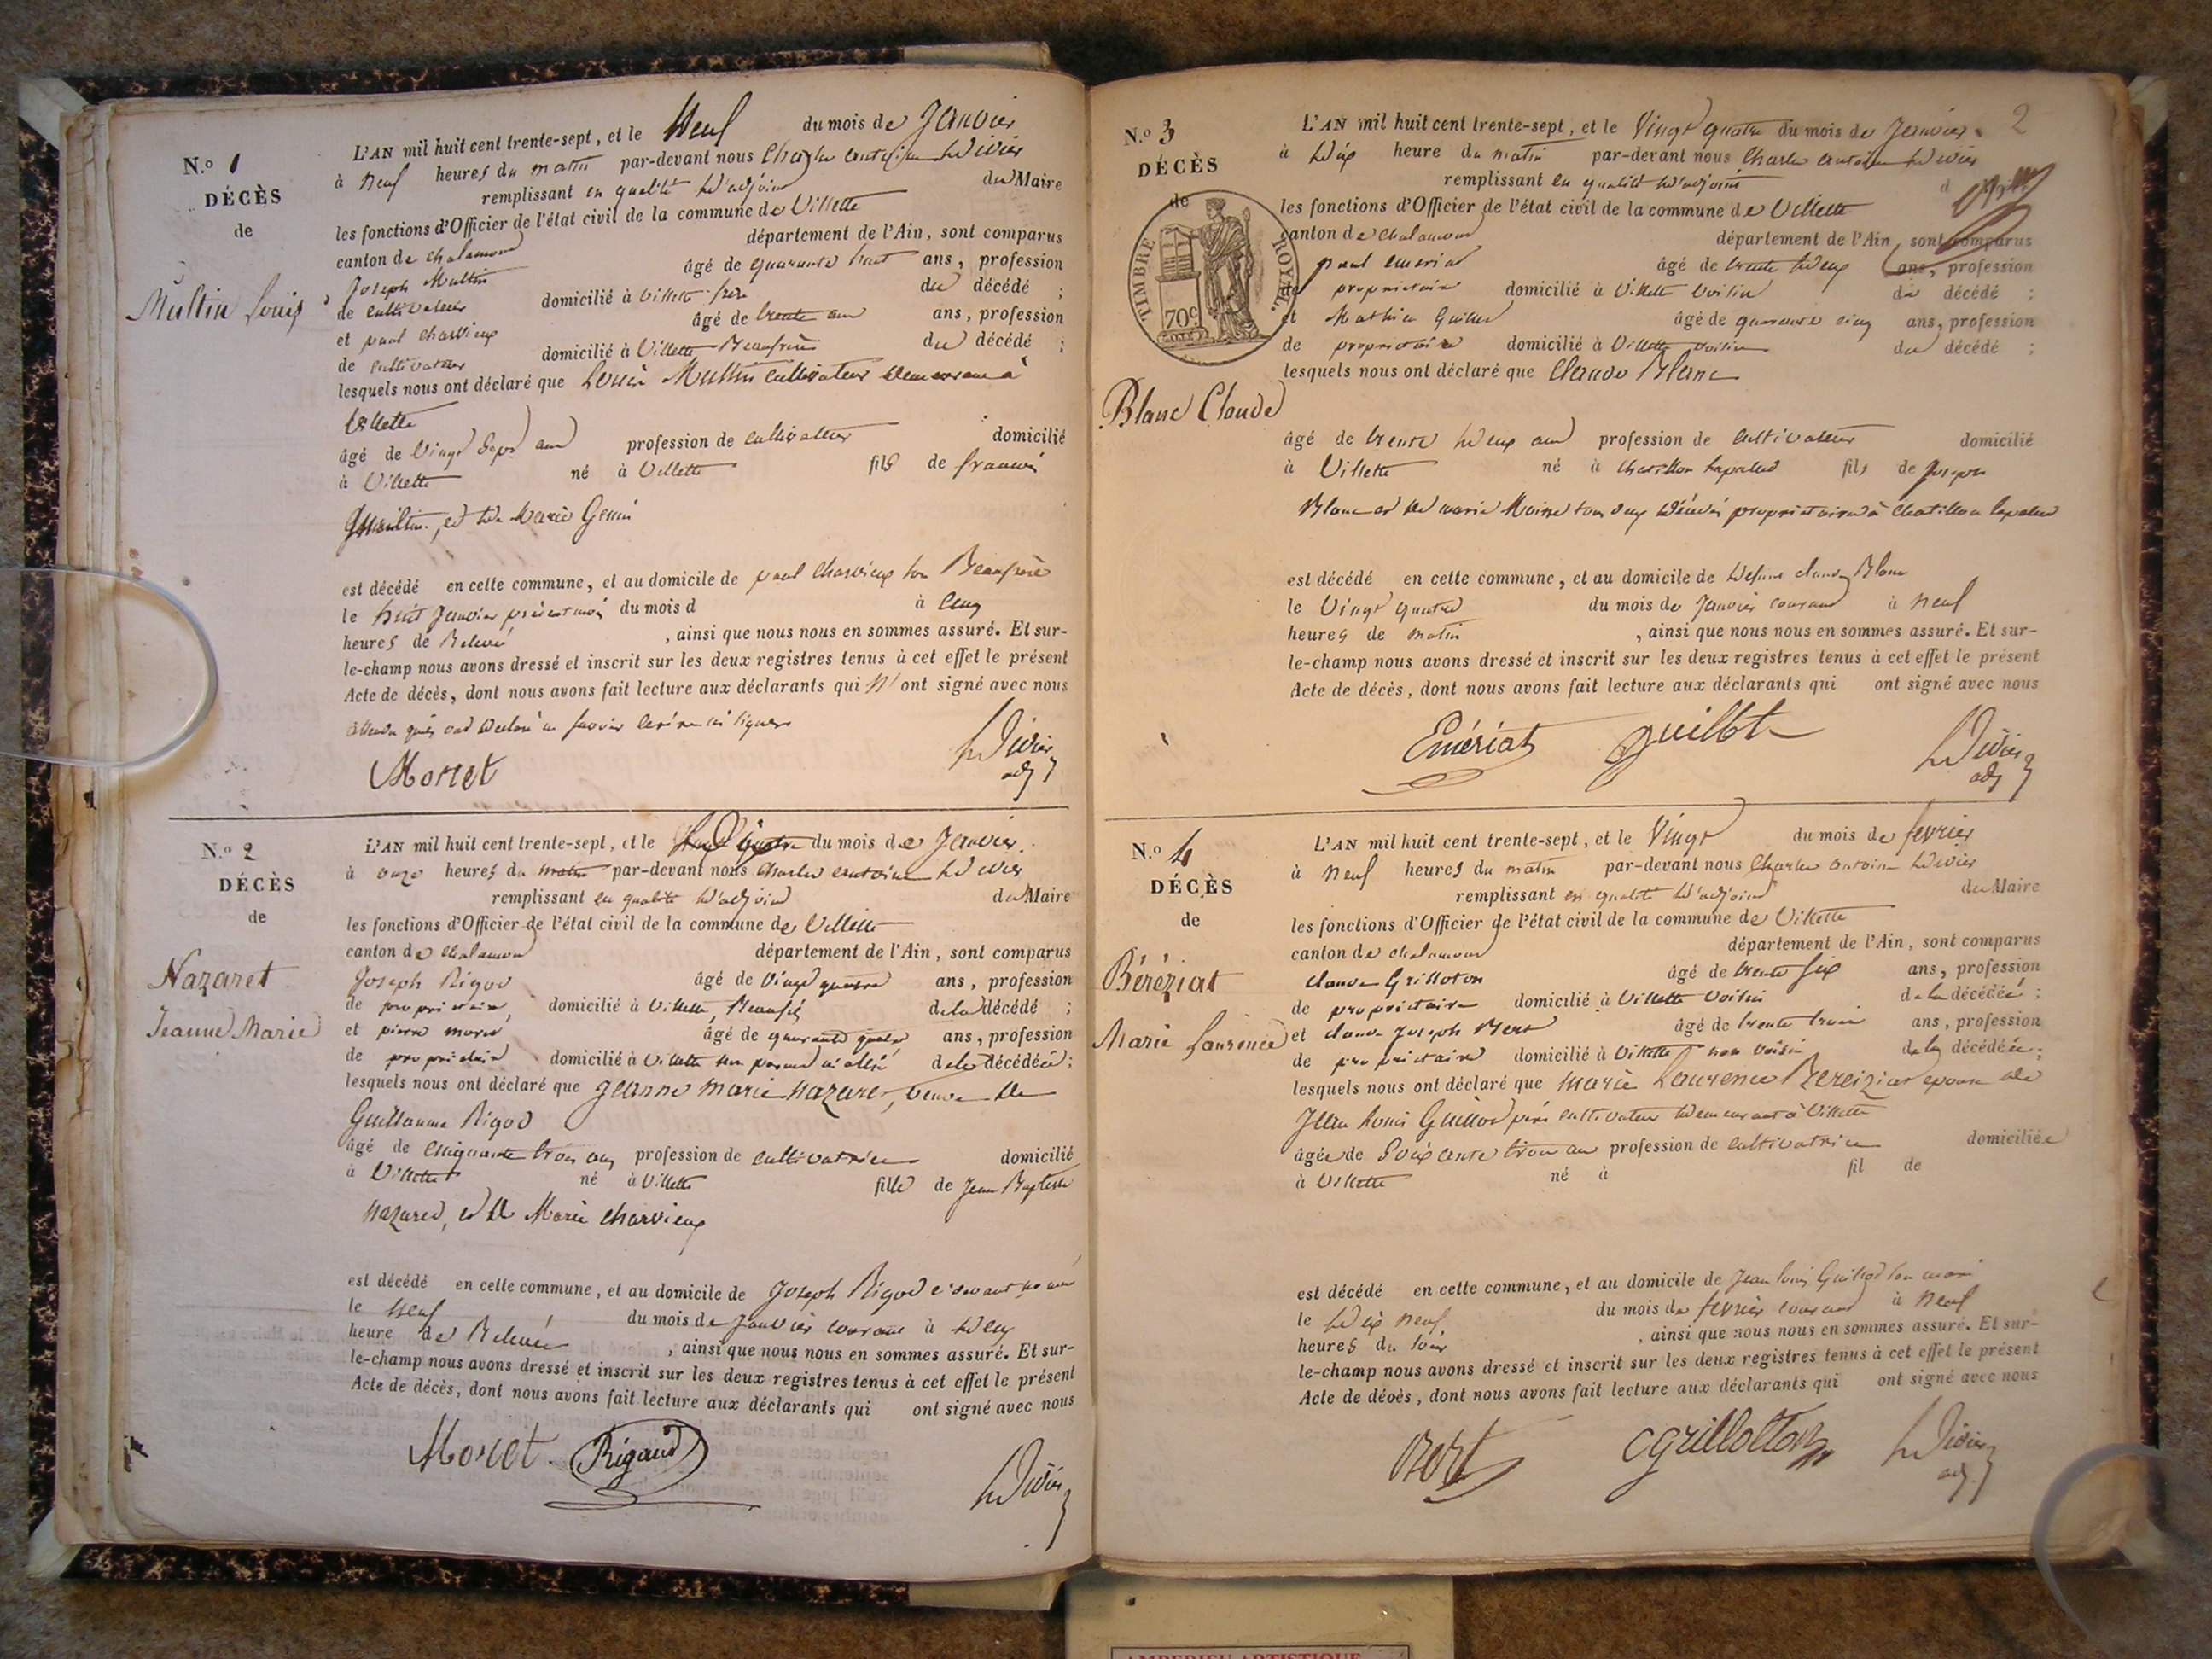 N.o 1
DÉCÈS
de
Multin Louis
L'AN mil huit cent trente-sept, et le Neuf du mois de Janvier
à Neuf heures du matin par-devant nous Charles antoine Didier
remplissant en qualité d'adjoint du Maire
les fonctions d'Officier de l'état civil de la commune de Villette
canton de chalamont département de l'Ain, sont comparus
Joseph Multin âgé de quarante huit ans, profession
de cultivateur domicilié à Villette frère du décédé ;
et paul charvieux âgé de trente ans ans, profession
de cultivateur domicilié à Villette Beaufrère du décédé ;
lesquels nous ont déclaré que Louis Multin cultivateur demeurant à
Villette
âgé de Vingt Sept ans profession de cultivateur domicilié
à Villette né à Villette fils de francois
Multin, et de Marie Genin
est décédé en cette commune, et au domicile de paul charvieux son Beaufrère
le huit Janvier présent mois du mois d à Cinq
heures de Relevé , ainsi que nous nous en sommes assuré. Et sur-
le-champ nous avons dressé et inscrit sur les deux registres tenus à cet effet le présent
Acte de décès, dont nous avons fait lecture aux déclarants qui N' ont signé avec nous
attendu qu'ils ont declaré ne savoir lecrire ni signer
Moret Didier adj
N.o 2
DÉCÈS
de
Nazaret
Jeanne Marie
L'AN mil huit cent trente-sept, et le du mois de Janvier
à onze heures du matin par-devant nous Charles antoine Didier
remplissant en qualité d'adjoint du Maire
les fonctions d'Officier de l'état civil de la commune de Villette
canton de chalamont département de l'Ain, sont comparus
Joseph Rigod âgé de Vingt quatre ans, profession
de propriétaire, domicilié à Villette, Beaufils dela décédé ;
et pierre moret âgé de quarante quatre ans, profession
de propriétaire domicilié à Villette non parent ni allié dela décédée ;
lesquels nous ont déclaré que Jeanne Marie Nazaret, veuve de
Guillaume Rigod
âgé de cinquante trois ans profession de cultivatrice domicilié
à Villette né à Villette fille de Jean Baptiste
Nazaret, et de Marie charvieux
est décédé en cette commune, et au domicile de Joseph Rigod ci devant nommé
le Neuf du mois de Janvier courant à deux
heure de Relevée , ainsi que nous nous en sommes assuré. Et sur-
le-champ nous avons dressé et inscrit sur les deux registres tenus à cet effet le présent
Acte de décès, dont nous avons fait lecture aux déclarants qui ont signé avec nous
Moret Rigaud Didier
2
N.o 3
DÉCÈS
de
TIMBRE ROYAL.
70c
Blanc Claude
L'AN mil huit cent trente-sept, et le Vingt quatre du mois de Janvier
à dix heure du matin par-devant nous Charles antoine Didier
remplissant en qualité d'adjoint
les fonctions d'Officier de l'état civil de la commune de Villette
canton de chalamont département de l'Ain, sont comparus
paul emeriat âgé de trente deux ans, profession
de propriétaire domicilié à Villette Voisin du décédé ;
et Mathieu Guillot âgé de quarante cinq ans, profession
de propriétaire domicilié à Villette voisin du décédé ;
lesquels nous ont déclaré que Claude Blanc
âgé de trente deux ans profession de cultivateur domicilié
à Villette né à chatillon lapalud fils de Joseph
Blanc et de marie Moine tous deux décédés propriétaires à chatillon lapalud
est décédé en cette commune, et au domicile de defunt claude Blanc
le Vingt quatre du mois de Janvier courant à Neuf
heures de matin , ainsi que nous nous en sommes assuré. Et sur-
le-champ nous avons dressé et inscrit sur les deux registres tenus à cet effet le présent
Acte de décès, dont nous avons fait lecture aux déclarants qui ont signé avec nous
Emériat guillot Didier adj
N.o 4
DÉCÈS
de
Béréziat
Marie Laurence
L'AN mil huit cent trente-sept, et le Vingt du mois de fevrier
à Neuf heures du matin par-devant nous Charles antoine Didier
remplissant en qualité d'adjoint du Maire
les fonctions d'Officier de l'état civil de la commune de Villette
canton de chalamont département de l'Ain, sont comparus
claude Grilloton âgé de trente six ans, profession
de propriétaire domicilié à Villette Voisin dela décédée ;
et claude Joseph Bert âgé de trente trois ans, profession
de propriétaire domicilié à Villette non voisin dela décédée ;
lesquels nous ont déclaré que Marie Laurence Bereiziat epouse de
Jean Louis Guillot père cultivateur demeurant à Villette
âgée de Soixante trois ans profession de cultivatrice domiciliée
à Villette né à fil de
est décédé en cette commune, et au domicile de Jean louis Guillot son mari
le dix neuf, du mois de fevrier courant à Neuf
heures du soir , ainsi que nous nous en sommes assuré. Et sur-
le-champ nous avons dressé et inscrit sur les deux registres tenus à cet effet le présent
Acte de décès, dont nous avons fait lecture aux déclarants qui ont signé avec nous
Bert cgrillotton Didier adj
AMBERIEU ARTISTIQUE